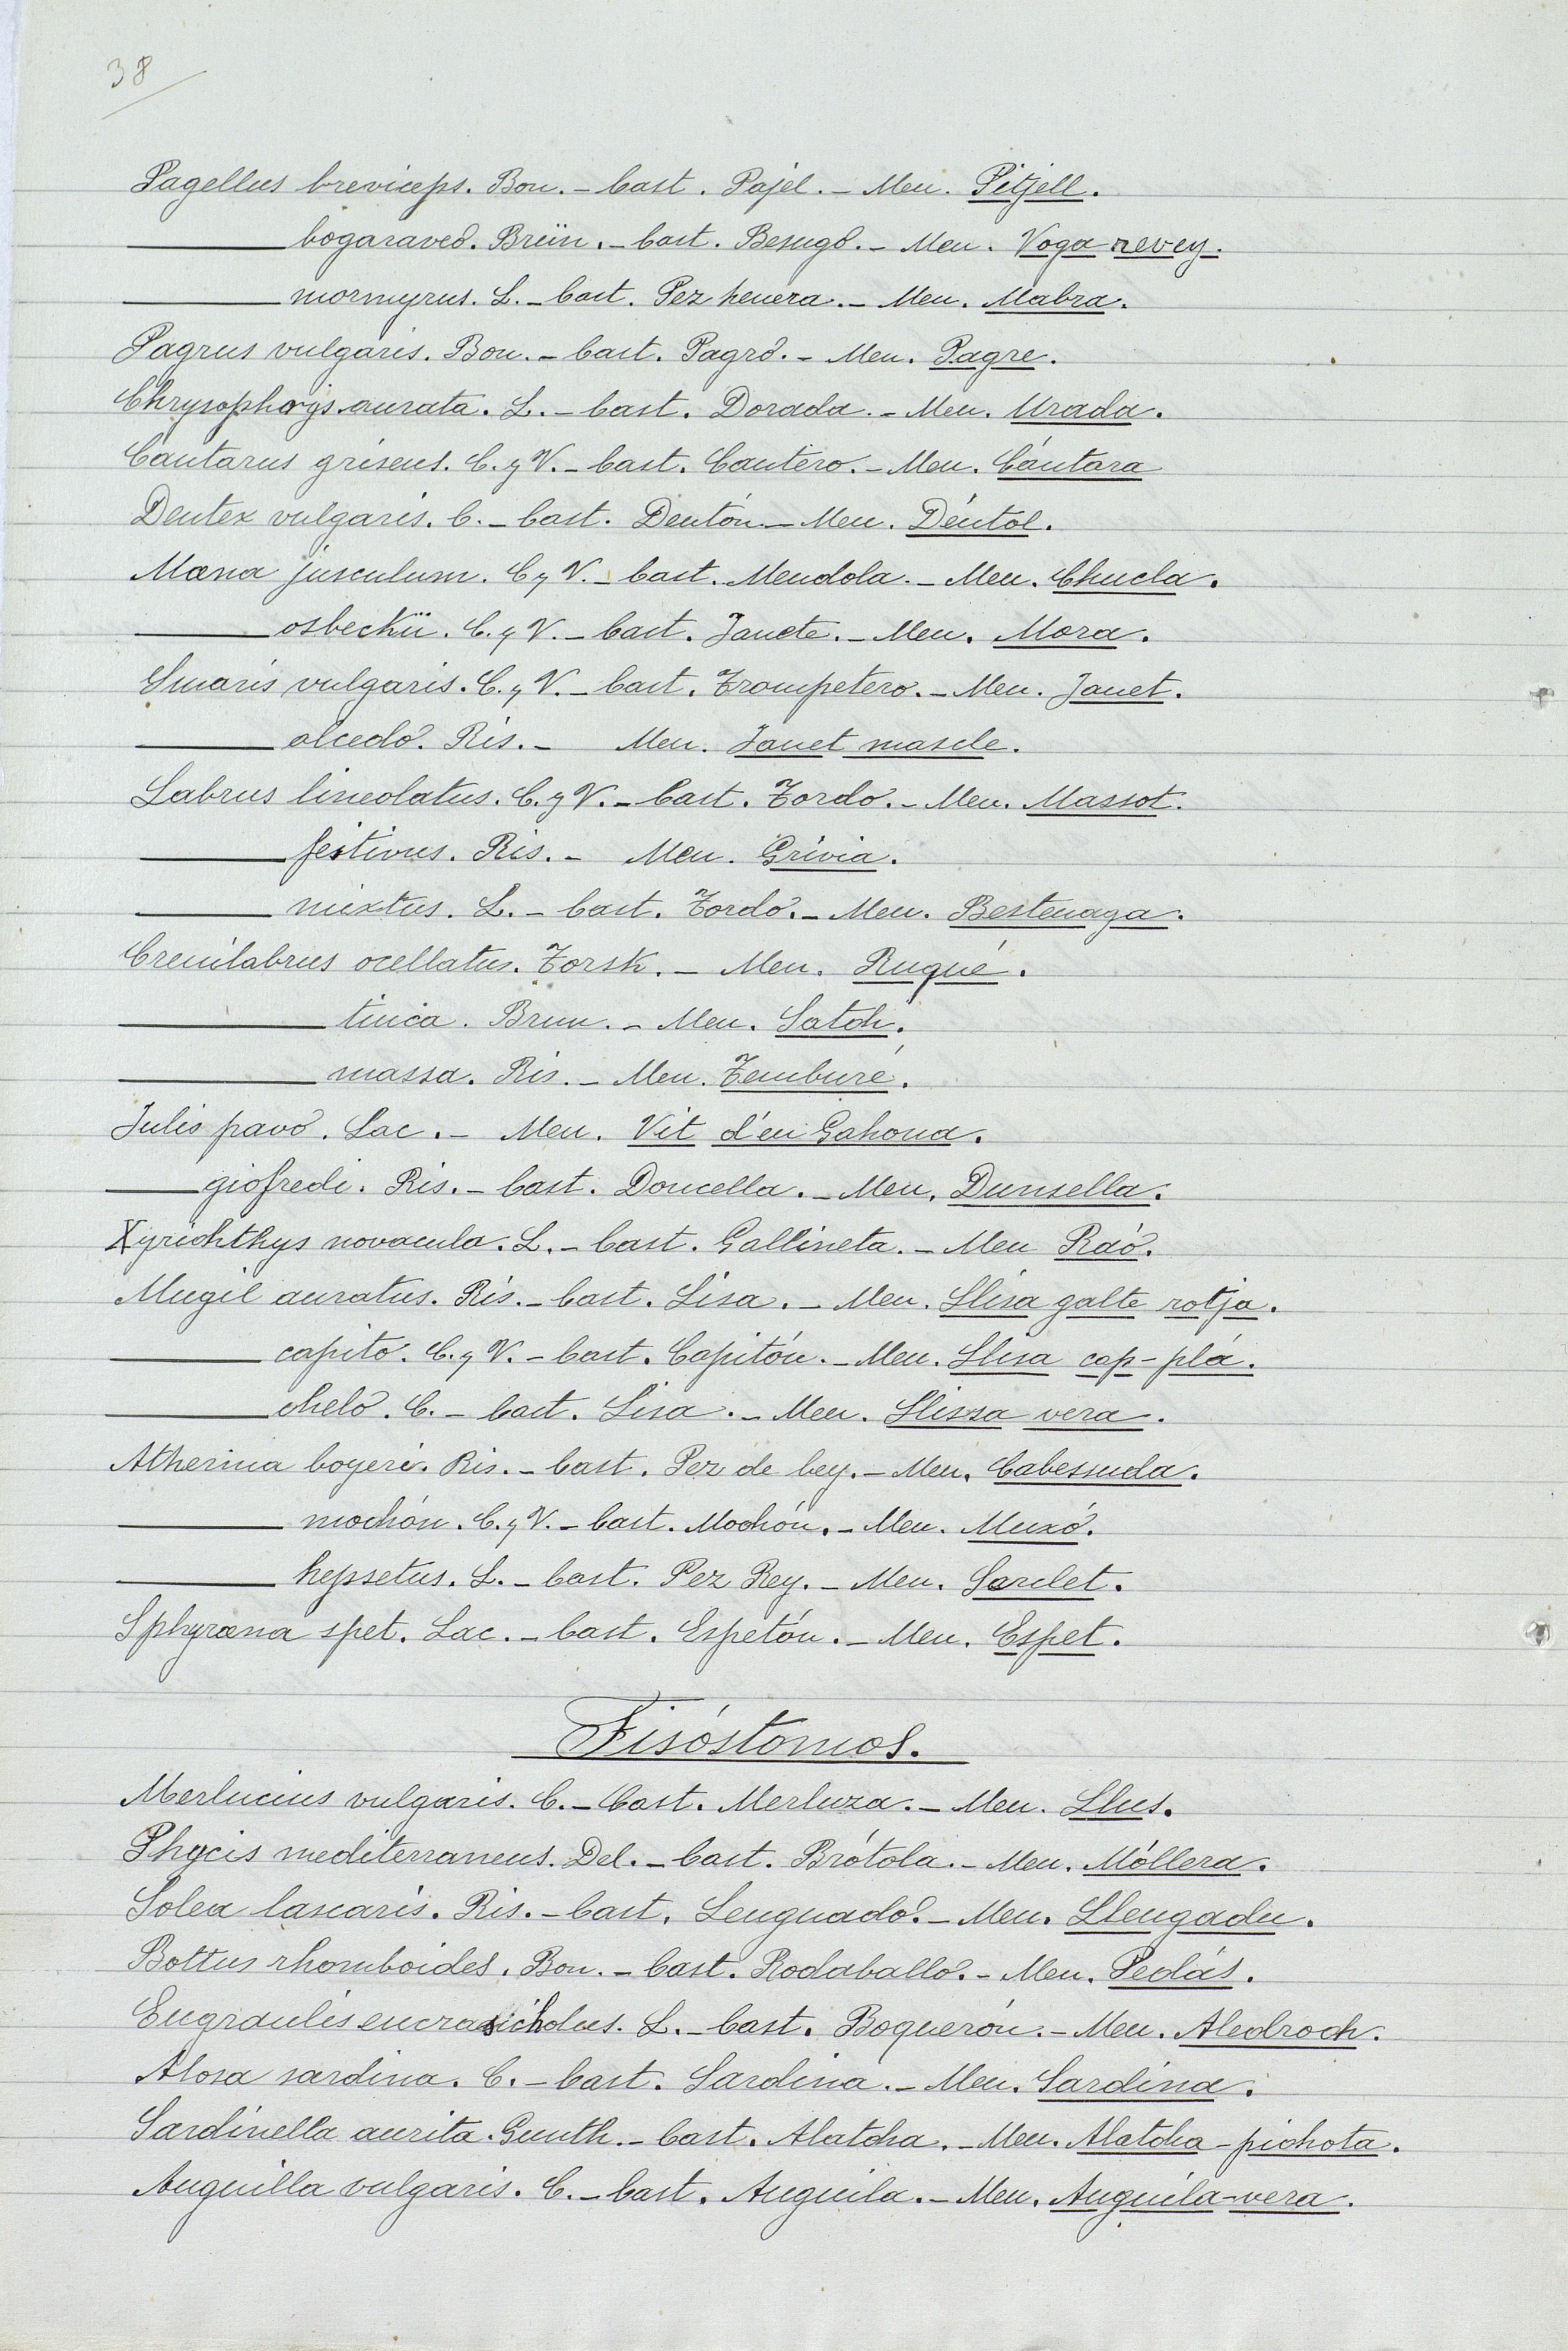 38
Pagellus breviceps. Bon. - Cast. Pajel. - Men. Pitjell.
——— bogaraveo. Brün. - Cast. Besugo. - Men. Voga revey.
——— mormyrus. L. - Cast. Pez herrera. - Men. Mabra.
Pagrus vulgaris. Bon. - Cast. Pagro. - Men. Pagre.
Chrysophrys aurata. L. - Cast. Dorada. - Men. Urada.
Cantarus griseus. C. y V. - Cast. Cantero. - Men. Cántara
Dentex vulgaris. C. - Cast. Dentón. - Men. Déntol.
Mæna jusculum. C y V. - Cast. Mendola. - Men. Chucla.
——— osbeckii. C. y V. - Cast. Janete. - Men. Mora.
Smaris vulgaris. C. y V. - Cast. Trompetero. - Men. Janet.
——— alcedo. Ris. - Men. Janet mascle.
Labrus lineolatus. C. y V. - Cast. Tordo. - Men. Massot.
——— festivus. Ris. - Men. Grivia.
——— mixtus. L. - Cast. Tordo. - Men. Bestenaga.
Crenilabrus ocellatus. Forsk. - Men. Ruqué.
——— tinca. Brun. - Men. Satch.
——— massa. Ris. - Men. Temburé.
Julis pavo. Lac. - Men. Vit d'en Gahona.
——— giofredi. Ris. - Cast. Doncella. - Men. Dunsella.
Xyrichthys novacula. L. - Cast. Gallineta. - Men Raó.
Mugil auratus. Ris. - Cast. Lisa. - Men. Llisa galte rotja.
——— capito. C. y V. - Cast. Capitón. - Men. Llisa cap-plá.
——— chelo. C. - Cast. Lisa. - Men. Llissa vera.
Atherina boyeri. Ris. - Cast. Pez de bey. - Men. Cabessuda.
——— mochón. C. y V. - Cast. Mochón. - Men. Muxó.
——— hepsetus. L. - Cast. Pez Rey. - Men. Sarclet.
Sphyræna spet. Lac. - Cast. Espetón. - Men. Espet.
Fisóstomos.
Merlucius vulgaris. C. - Cast. Merluza. - Men. Llus.
Phycis mediterraneus. Del. - Cast. Brótola. - Men. Móllera.
Solea lascaris. Ris. - Cast. Lenguado. - Men. Llengadu.
Bottus rhomboides. Bon. - Cast. Rodaballo. - Men. Pedás.
Engraulis encrasicholus. L. - Cast. Boquerón. - Men. Aledroch.
Alosa sardina. C. - Cast. Sardina. - Men. Sardina.
Sardinella aurita. Gunth. - Cast. Alatcha. - Men. Alatcha-pichota.
Anguilla vulgaris. C. - Cast. Anguila. - Men. Anguila-vera.